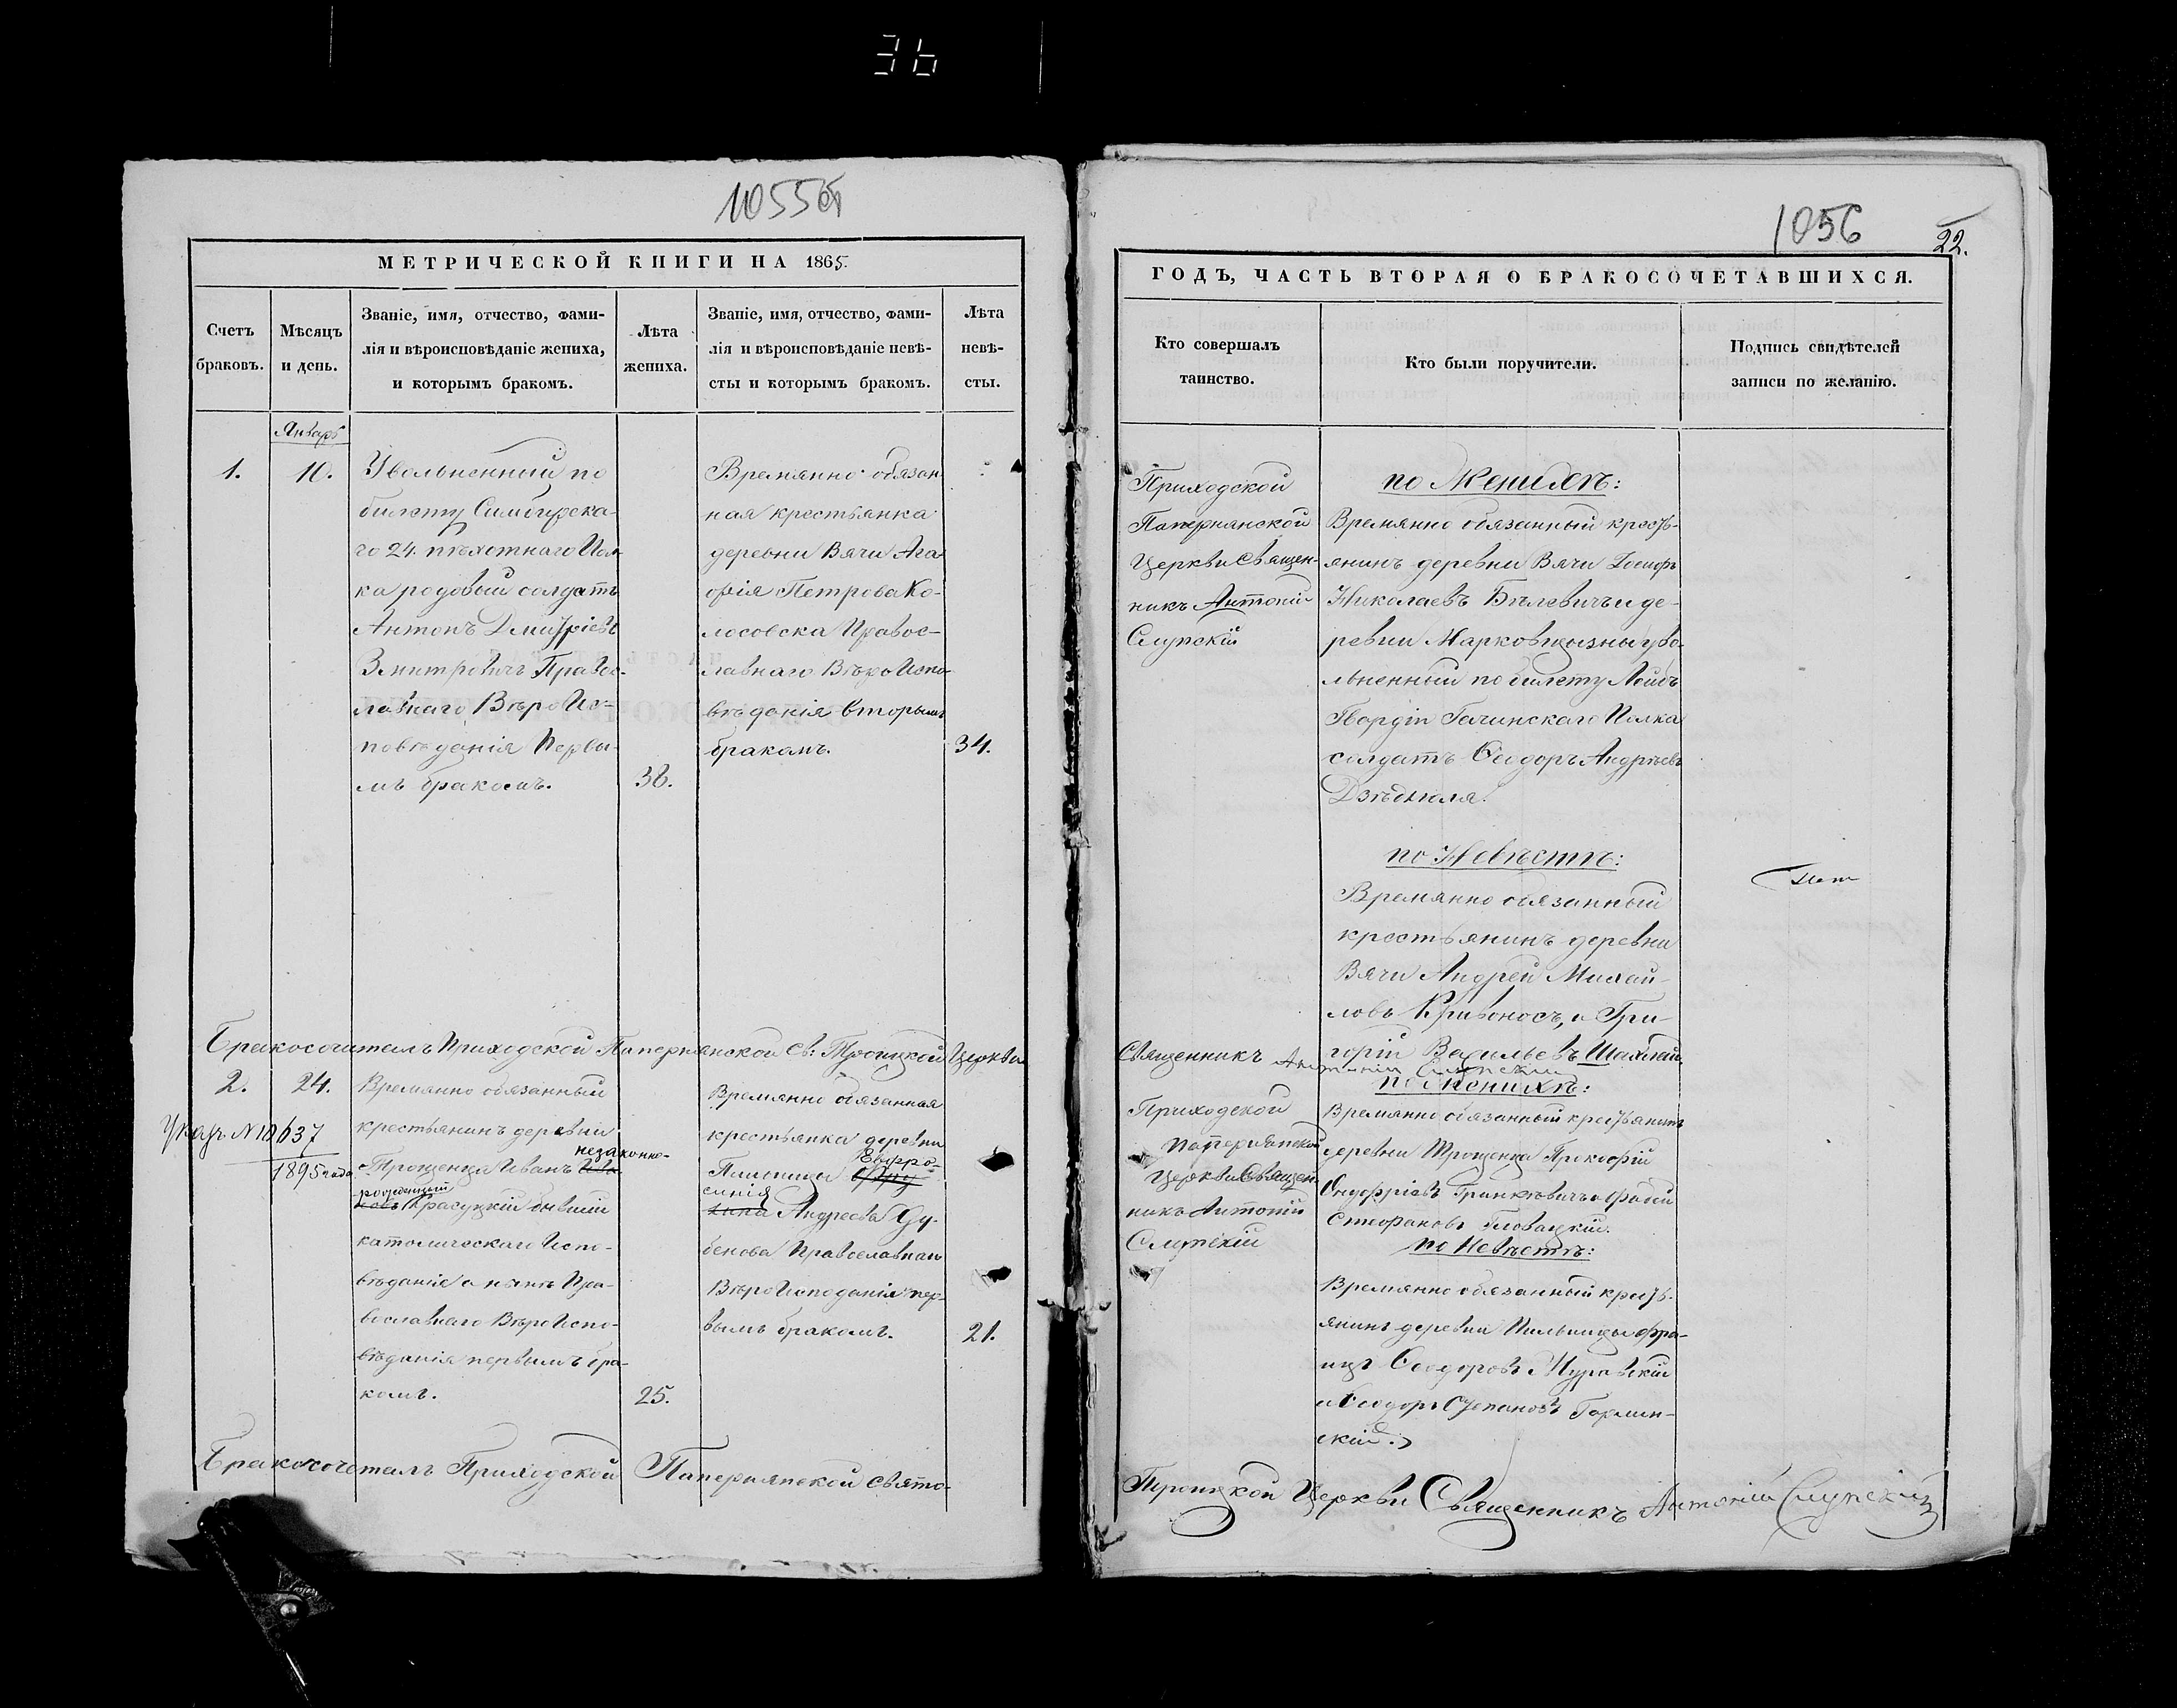 36
1055об
МЕТРИЧЕСКОЙ КНИГИ НА 1865.
Счетъ
браковъ.
Мѣсяцъ
и день.
Званіе, имя, отчество, фами-
лія и вѣроисповѣданіе жениха,
и которымъ бракомъ.
Лѣта
жениха.
Званіе, имя, отчество, фами-
лія и вѣроисповѣданіе невѣ-
сты и которымъ бракомъ.
Лѣта
невѣ-
сты.
Январь
1.
10.
Увольненный по
билету Симбирска-
го 24. пѣхотнаго Пол-
ка рядовый солдатъ
Антонъ Дмитріевъ
Змитровичъ Правос-
лавнаго ВѣроИс-
повѣданія Первы-
мъ бракомъ.
38.
Времянно обязан-
ная крестьянка
деревни Вячи Ага-
фія Петрова Ко-
лосовска Правос-
лавнаго ВѣроИспо-
вѣданія вторымъ
бракомъ.
34.
Бракосочеталъ Приходской Папернянской Св: Троицкой Церкви
2.
24.
Указъ N 10637
1895 года
Времянно обязанный
крестьянинъ деревни
Трощенца Иванъ
незаконно-
рожденный
Красуцкій бывшій
католическаго Испо-
вѣданія а нынѣ Пра-
вославнаго ВѣроИспо-
вѣданія первымъ бра-
комъ.
25.
Времянно обязанная
крестьянка деревни
Пильницы Евфро-
синія
Андреева
бенова Православнаго
ВѣроИсподанія пер-
вымъ бракомъ.
21.
Бракосочеталъ Приходской Папернянской Свято-
1056
22.
ГОДЪ, ЧАСТЬ ВТОРАЯ О БРАКОСОЧЕТАВШИХСЯ.
Кто совершалъ
таинство.
Кто были поручители.
Подпись свидѣтелей
записи по желанію.
Приходской
Папернянской
Церкви Священ-
никъ Антоній
Слупскій
по Женихѣ:
Времянно обязанный кресть-
янинъ деревни Вячи Іосифъ
Николаевъ Бѣлевичъ и де-
ревни Марковщизны уво-
льненный по билету Лейбъ
Гвардіи Гачинскаго Полка
солдатъ Ѳеодоръ Андреевъ
по Невѣстѣ:
Времянно обязанный
крестьянинъ деревни
Вячи Андрей Михай-
ловъ Кривоносъ, и Гри-
горій Васильевъ
Священникъ Антоній Слупскій
по Женихѣ:
Приходской
Папернянской
Церкви Священ-
никъ Антоній
Слупскій
Времянно обязанный крестьянинъ
деревни Трощенца Прокофій
Онуфріевъ Гринкевичъ и Фадей
Стефановъ Гловацкій.
по Невѣстѣ:
Времянно обязанный кресть-
янинъ деревни Пильницы Фра-
нцъ Ѳеодоровъ Журавскій
и Ѳеодоръ Степановъ
скій.
Троицкой Церкви Священникъ Антоній Слупскій